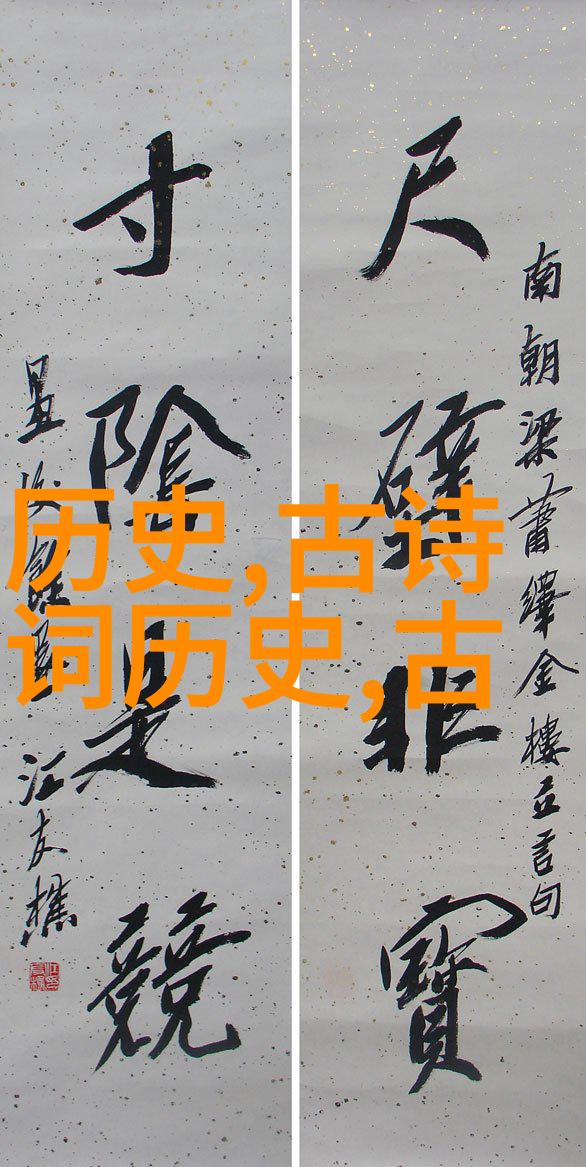 南朝梁蕭繹金樓立言句
尺璧非寶
寸陰是競
江友樵
历史,古诗
词历史,古